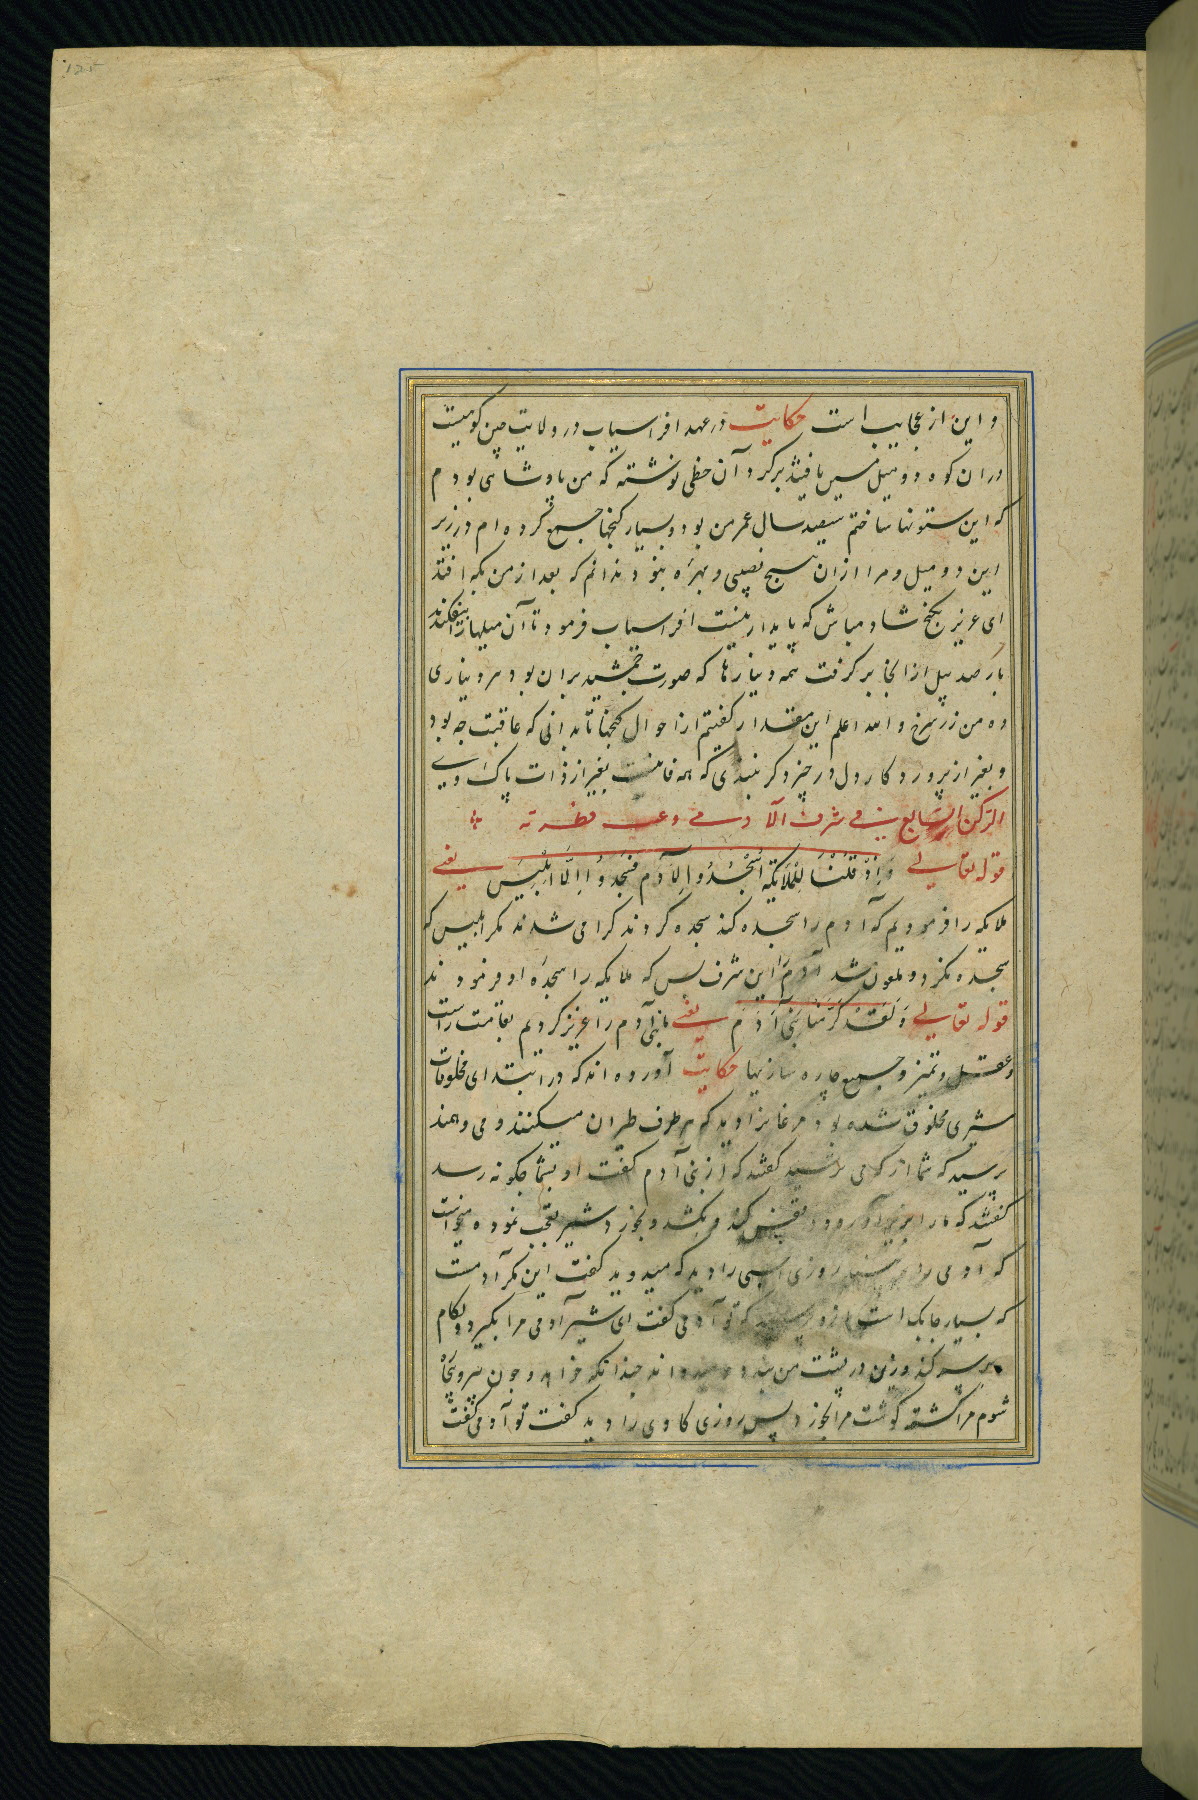 و این از عجایب است حکایت در عهد افراسیاب در ولایت چین کوهیست
در ان کوه دو میل مسین یافتند بر کرد آن خطی نوشته که من پادشاهی بودم
که این ستونها ساختم سیصد سال عمر من بود و بسیار کنجها جمع کرده ام در زیر
این دو میل و مرا ازان هیچ نصیبی و بهره نبود ندانم که بعد از من بکه افتد
ای عزیز بکنج شاد مباش که پایدار نیست افراسیاب فرمود تا آن میلها را بیفکندند
بار صد پیل ازانجا بر کرفت همه دینارها که صورت جمشید بران بود هر دیناری
ده من زر سرخ والله اعلم این مقدار کفتیم از احوال کنجها تا بدانی که عاقبت چه بود
و بغیر از پروردکار دل در چیز دکر نبندی که همه فانیست بغیر از ذات پاک وی
الرکن السابع فی شرف الآدمی و عجب فطرته
قوله تعالی وَإِذْ قُلْنَا لِلْمَلَایِکَةِ اسْجُدُوا لِآدَمَ فَسَجَدُوا إِلَّا إِبْلِیسَ یعنی
ملایکه را فرمودیم که آدم را سجده کنند سجده کردند کرامی شدند مکر ابلیس که
سجده نکرد و ملعون شد آدم را این شرف بس که ملایکه را سجده او فرمودند
قوله تعالی وَلَقَدْ کَرَّمْنَا بَنِی آدَمَ یعنی ما بنی آدم را عزیز کردیم بقامت راست
و عقل و تمیز و جمیع چاره سازیها حکایت آورده اند که در ابتدای مخلوقات
شیری مخلوق شده بود مرغانرا دید که هر طرف طیران میکنند و می
پرسید که شما از که می ترسید کفتند که از بنی آدم کفت او بشما چکونه رسد
کفتند که ما را بزیر آورد و در قفس کند و بکشد و بخورد شیر تعجب نموده میخواست
که آدمی را به بیند روزی اسبی را دید که میدوید کفت این مکر آدمست
که بسیار چابک است ازو پرسید که تو آدمی کفت ای شیر آدمی مرا بگیرد و لکام
بر سر کند و زین در پشت من بندد و میدواند چندانکه خواهد و چون پیر و
شوم مرا کشته کوشت مرا بخورد پس روزی کاوی را دید کفت تو آدمی کفت